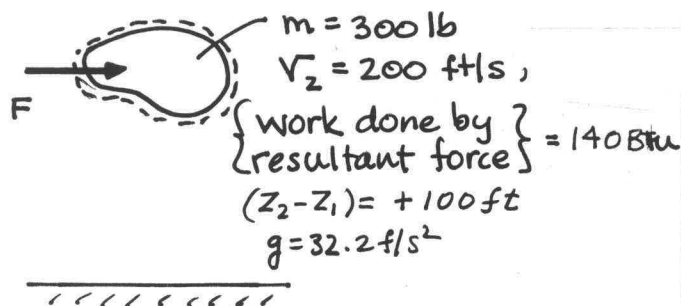 m = 300 lb
V₂ = 200 ft/s ,
F
{work done by resultant force} = 140 Btu
(Z₂-Z₁) = +100 ft
g = 32.2 f/s²